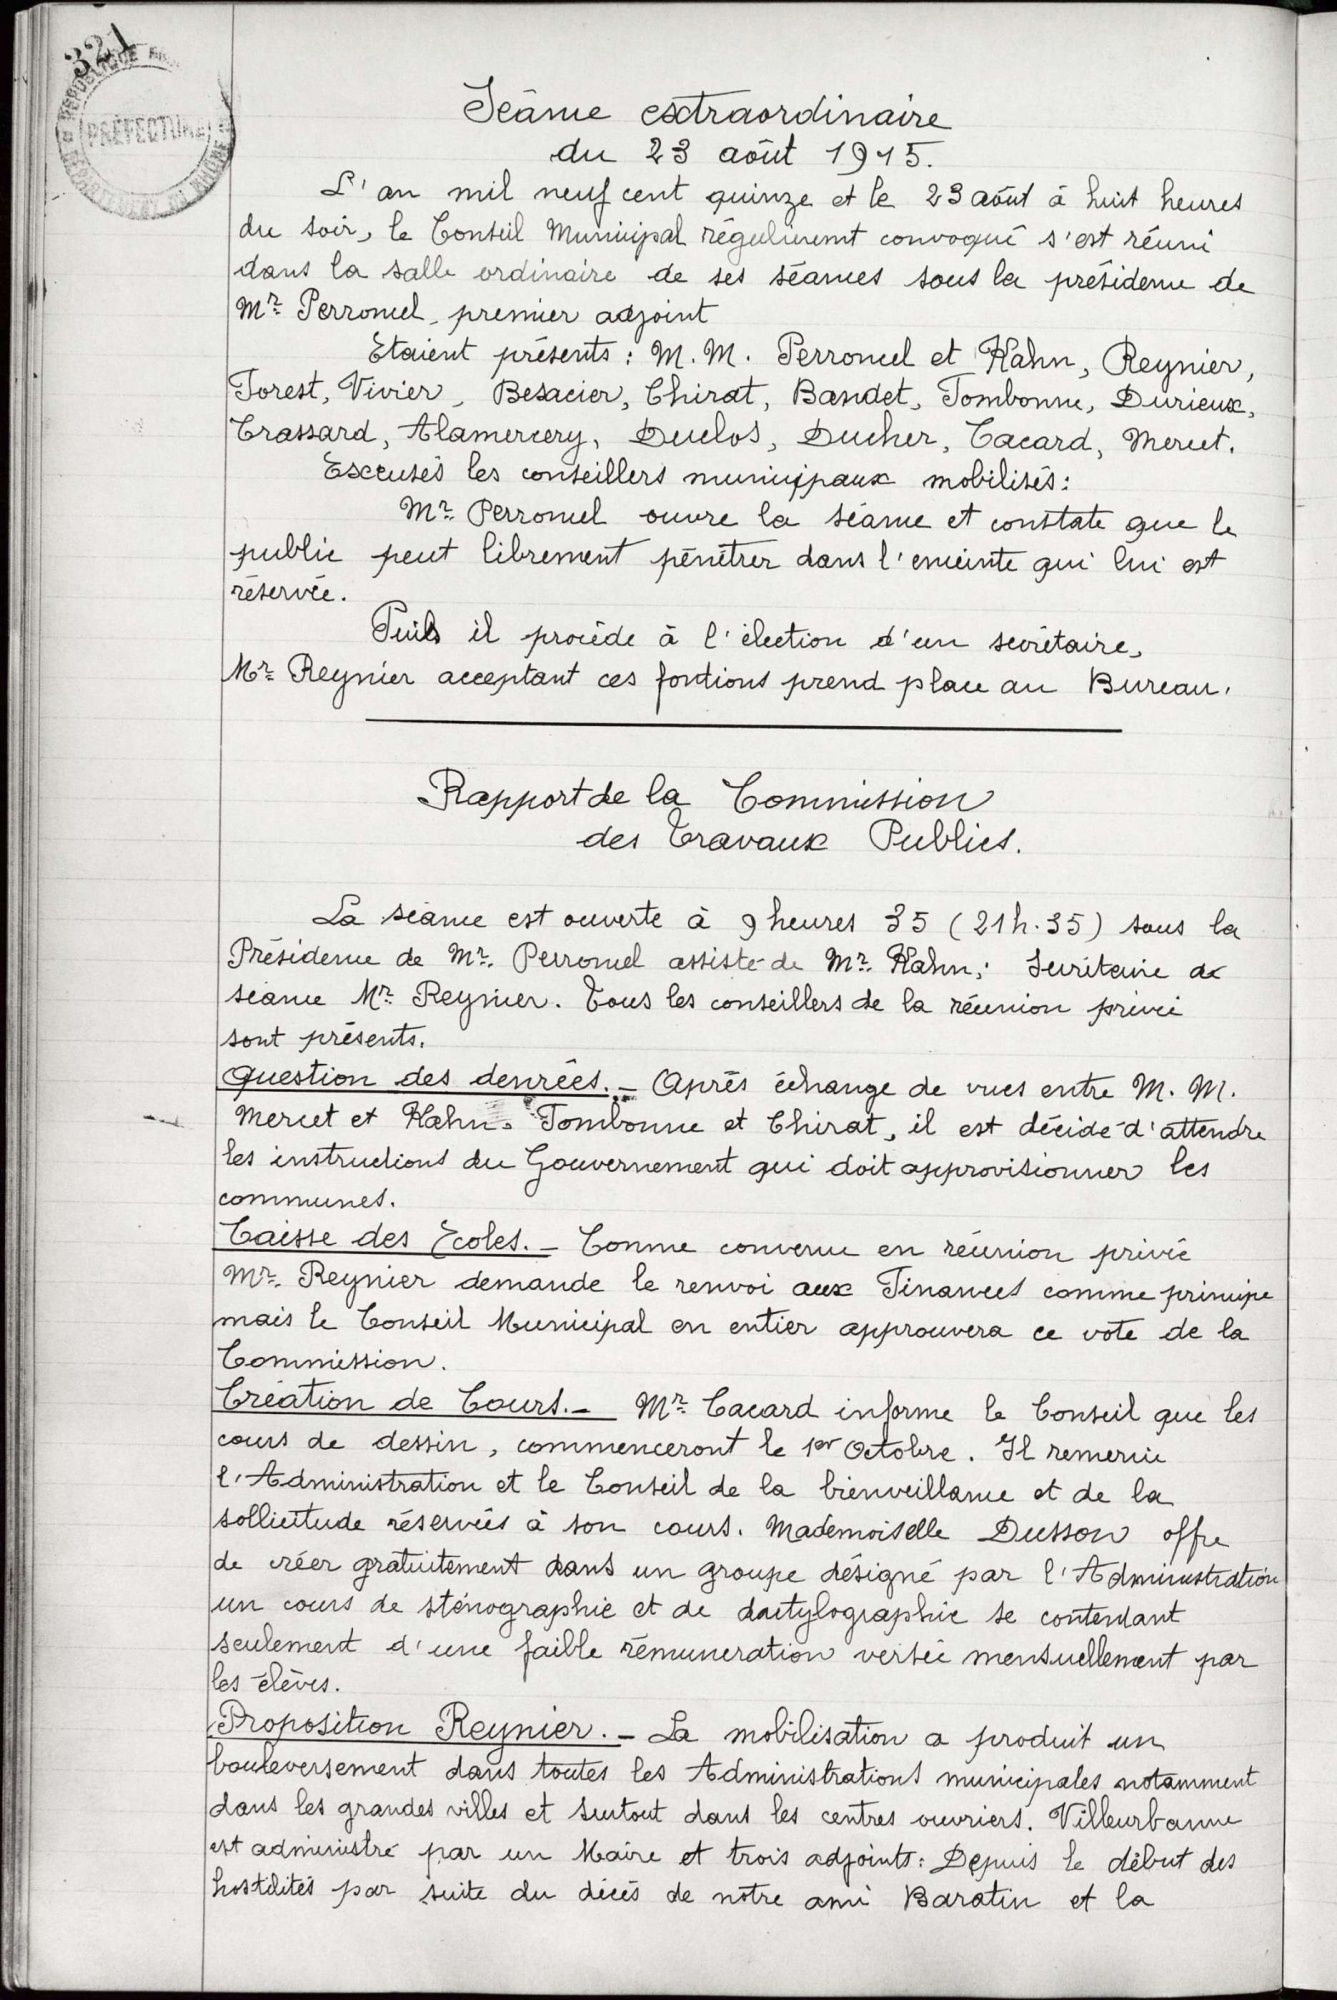 321
RÉPUBLIQUE
PRÉFECTURE
DÉPARTEMENT DU RHÔNE
Séance extraordinaire
du 23 août 1915.
L'an mil neuf cent quinze et le 23 août à huit heures
du soir, le Conseil Municipal régulièrement convoqué s'est réuni
dans la salle ordinaire de ses séances sous la présidence de
Mr. Perroncel, premier adjoint
Etaient présents : M.M. Perroncel et Kahn, Reynier,
Forest, Vivier, Besacier, Chirat, Bandet, Fombonne, Durieux,
Crassard, Alamercery, Duclos, Ducher, Cacard, Mercet.
Excusés les conseillers municipaux mobilisés :
Mr. Perroncel ouvre la séance et constate que le
public peut librement pénétrer dans l'enceinte qui lui est
réservée.
Puis il procède à l'élection d'un secrétaire,
Mr. Reynier acceptant ces fontions prend place au Bureau.
Rapport de la Commission
des Travaux Publics.
La séance est ouverte à 9 heures 35 (21h.35) sous la
Présidence de Mr. Perroncel assisté de Mr. Kahn ; Secrétaire de
séance Mr. Reynier. Tous les conseillers de la réunion privée
sont présents.
Question des denrées. - Après échange de vues entre M.M.
Mercet et Kahn. Fombonne et Chirat, il est décidé d'attendre
les instructions du Gouvernement qui doit approvisionner les
communes.
Caisse des Ecoles. - Comme convenu en réunion privée
Mr. Reynier demande le renvoi aux Finances comme principe
mais le Conseil Municipal en entier approuvera ce vote de la
Commission.
Création de Cours. - Mr. Cacard informe le Conseil que les
cours de dessin, commenceront le 1er Octobre. Il remercie
l'Administration et le Conseil de la bienveillance et de la
sollicitude réservées à son cours. Mademoiselle Dusson offre
de créer gratuitement dans un groupe désigné par l'Administration
un cours de sténographie et de dactylographie se contentant
seulement d'une faible rémuneration versée mensuellement par
les élèves.
Proposition Reynier. - La mobilisation a produit un
bouleversement dans toutes les Administrations municipales notamment
dans les grandes villes et surtout dans les centres ouvriers. Villeurbanne
est administré par un Maire et trois adjoints : Depuis le début des
hostilités par suite du décés de nôtre ami Baratin et la